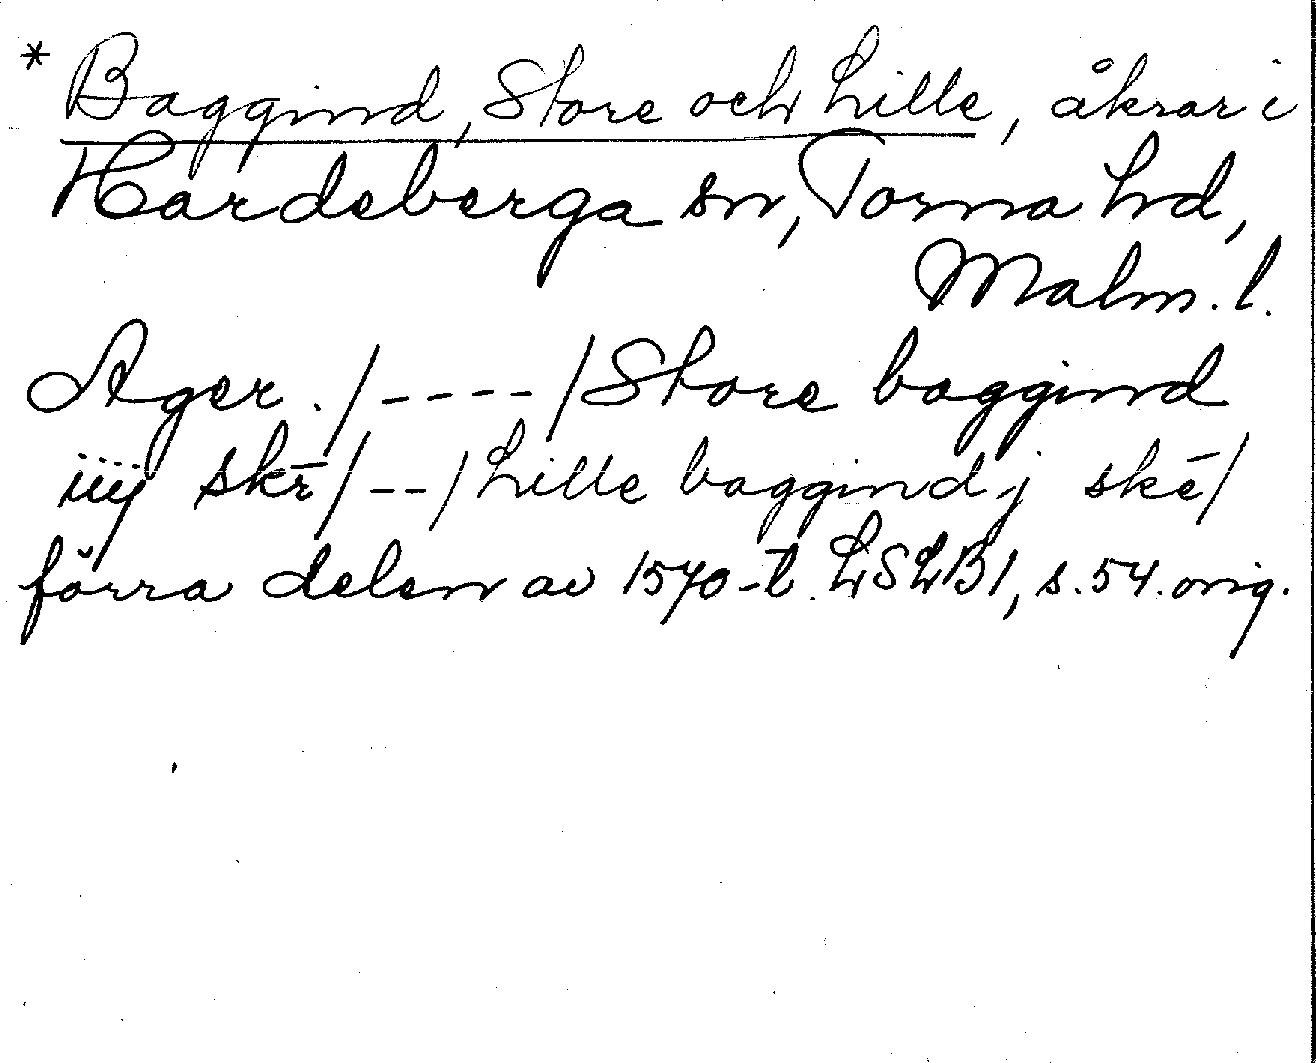 * Baggind, Store och Lille, åkrar i
Hardeberga sn, Torna hd,
Malm. l.
Ager. /----/ Store baggind
iiij skr̄ /--/ Lille baggind j skē/
förra delen av 1570-t. LSLB1, s. 54. orig.